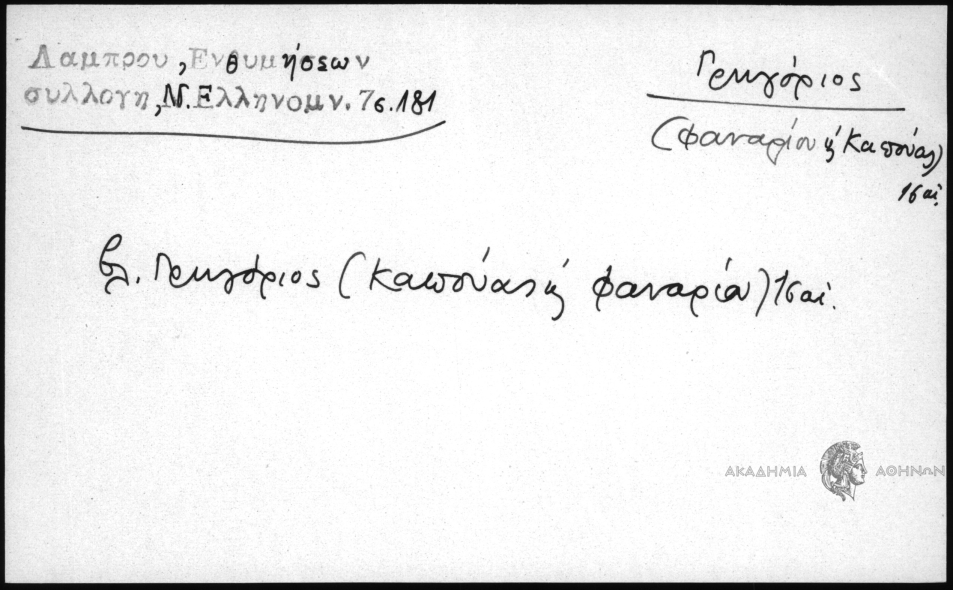 Λαμπρου, Ενθυμήσεων
συλλογη, Ν. Ελληνομν. 7 σ. 181
Γρηγόριος
(Φαναρίου ἤ Καπούας)
16 αἰ.
βλ. Γρηγόριος (Καπούας ἤ Φαναρίου) 16 αἰ.
ΑΚΑΔΗΜΙΑ ΑΘΗΝΩΝ